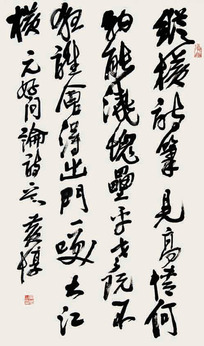 縱橫詩筆見高情何
物能澆塊壘平老阮不
狂誰會得出門一笑大江
橫 元好问論詩 黃惇